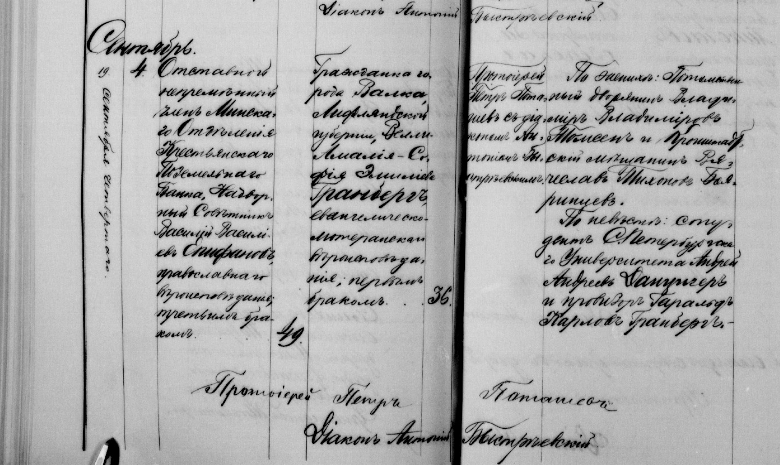 Діаконъ Антоній Быстріевскій
Сентябрь.
19. 4
сентября четвертаго.
Отставной
непремѣнный
членъ Минска-
го Отдѣленія
Крестьянскаго
Поземельнаго
Банка, Надвор-
ный Совѣтникъ
Василій Василі-
евъ Епифановъ,
православнаго
вѣроисповѣданія,
третьимъ бра-
комъ.
49.
Гражданка го-
рода Валка,
Лифляндской
губерніи,
Амалія-Со-
фія Эмилія
Гранбергъ,
евангелическо-
лютеранскаго
вѣроисповѣда-
нія; первымъ
бракомъ.
36.
Протоіерей
Петръ Пота-
шевъ съ діа-
кономъ Ан-
тоніемъ Бы-
стріевскимъ.
По женихѣ: Потомствен-
ный дворянинъ Влади-
міръ Владиміровъ
и Кронштадт-
скій мѣщанинъ Вя-
чеславъ Тихоновъ
По невѣстѣ: сту-
дентъ СПетербургска-
го Университета Андрей
Андреевъ Данцигеръ
и провизоръ Гаральдъ
Карловъ Гранбергъ.-
Протоіерей Петръ Поташевъ
Діаконъ Антоній Быстріевскій